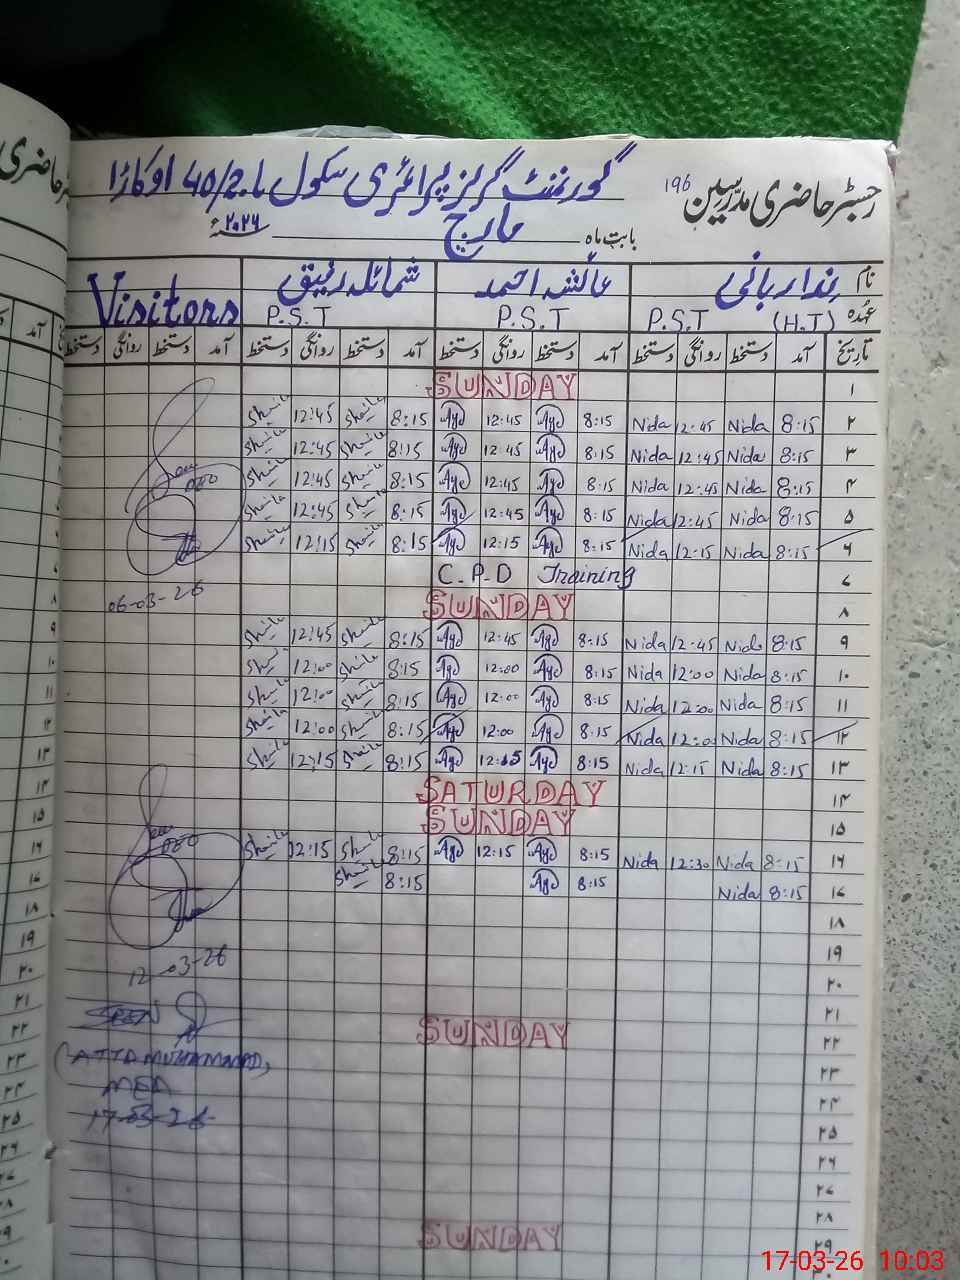 رجسٹر حاضری مدرسین 196
گورنمنٹ گرلز پرائمری سکول 40/2.L اوکاڑا
بابت ماہ مارچ ۲۰۲۶ء
نام ندا ربانی عائشہ احمد شمائلہ رفیق Visitors
عہدہ (H.T) P.S.T P.S.T P.S.T
تاریخ آمد دستخط روانگی دستخط آمد دستخط روانگی دستخط آمد دستخط روانگی دستخط آمد دستخط روانگی دستخط
۱ SUNDAY
۲ 8:15 Nida 12:45 Nida 8:15 Aye 12:45 Aye 8:15 Shaila 12:45 Shaila
۳ 8:15 Nida 12:45 Nida 8:15 Aye 12:45 Aye 8:15 Shaila 12:45 Shaila
۴ 8:15 Nida 12:45 Nida 8:15 Aye 12:45 Aye 8:15 Shaila 12:45 Shaila
۵ 8:15 Nida 12:45 Nida 8:15 Aye 12:45 Aye 8:15 Shaila 12:45 Shaila
۶ 8:15 Nida 12:15 Nida 8:15 Aye 12:15 Aye 8:15 Shaila 12:15 Shaila
۷ C.P.D Training
۸ SUNDAY
06-03-26
۹ 8:15 Nida 12:45 Nida 8:15 Aye 12:45 Aye 8:15 Shaila 12:45 Shaila
۱۰ 8:15 Nida 12:00 Nida 8:15 Aye 12:00 Aye 8:15 Shaila 12:00
۱۱ 8:15 Nida 12:00 Nida 8:15 Aye 12:00 Aye 8:15 Shaila 12:00 Shaila
۱۲ 8:15 Nida 12:00 Nida 8:15 Aye 12:00 Aye 8:15 Shaila 12:00 Shaila
۱۳ 8:15 Nida 12:15 Nida 8:15 Aye 12:15 Aye 8:15 Shaila 12:15 Shaila
۱۴ SATURDAY
۱۵ SUNDAY
۱۶ 8:15 Nida 12:30 Nida 8:15 Aye 12:15 Aye 8:15 Shaila 12:15 Shaila
۱۷ 8:15 Nida 8:15 Aye 8:15 Shaila
۱۸
۱۹
12-03-26
۲۰
۲۱
SEEN
۲۲ SUNDAY
(ATTA MUHAMMAD,
۲۳
MEA
۲۴
17-03-26
۲۵
۲۶
۲۷
۲۸
۲۹ SUNDAY
۳۰
17-03-26 10:03